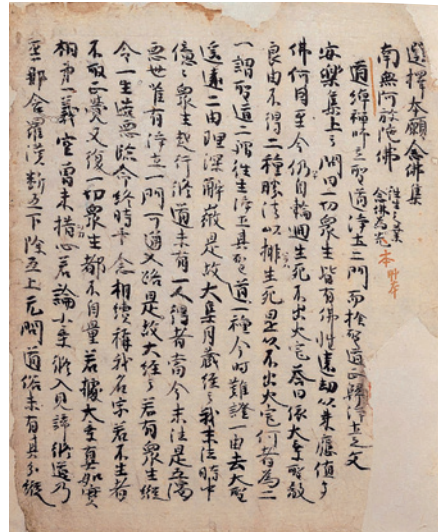 選擇本願念佛集
南無阿弥陀佛 往生之業
念佛為先 本
道綽禪師立聖道淨土二門而捨聖道正歸淨土之文
安樂集上云問曰一切衆生皆有佛性遠劫以來應値多
佛何因至今仍自輪廻生死不出火宅答曰依大乘聖教
良由不得二種勝法以排生死是以不出火宅何者為二
一謂聖道二謂往生淨土其聖道一種今時難證一由去大聖
遙遠二由理深解微是故大集月藏經云我末法時中
億億衆生起行修道未有一人得者當今末法是五濁
惡世唯有淨土一門可通入路是故大經云若有衆生縱
令一生造惡臨命終時十念相續稱我名字若不生者
不取正覺又復一切衆生都不自量若據大乘真如實
相第一義空曽未措心若論小乘修入見諦修道乃
至那含羅漢断五下除五上无問道俗未有其分縱